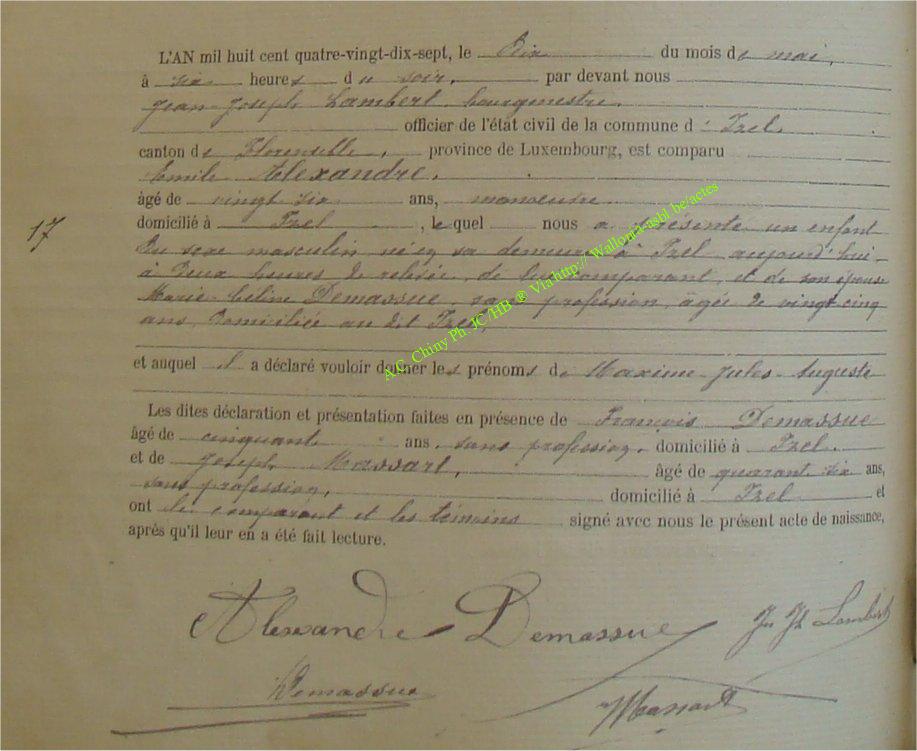 L'AN mil huit cent quatre-vingt-dix-sept, le Dix du mois de mai,
à six heures du soir, par devant nous
Jean-Joseph Lambert, bourgmestre,
officier de l'état civil de la commune d'Izel,
canton de Florenville, province de Luxembourg, est comparu
Emile Alexandre,
âgé de vingt six ans, manoeuvre
domicilié à Izel, lequel nous a présenté un enfant
17
Du sexe masculin né en sa demeure à Izel aujourd'hui
à Deux heures de relevée, de lui comparant, et de son épouse
Marie-Céline Demassue, sans profession, âgée de vingt-cinq
ans, Domiciliée au dit Izel,
et auquel il a déclaré vouloir donner les prénoms de Maxime-Jules-Auguste
Les dites déclaration et présentation faites en présence de François Demassue
âgé de cinquante ans, sans profession, domicilié à Izel.
et de Joseph Massart, âgé de quarante six ans,
sans profession, domicilié à Izel et
ont le comparant et les témoins signé avec nous le présent acte de naissance,
après qu'il leur en a été fait lecture.
Alexandre Demassue Jn Jh Lambert
Demassue Massart
A.C. Chiny Ph. JC/HB ® Via http:// Wallonia-asbl.be/actes